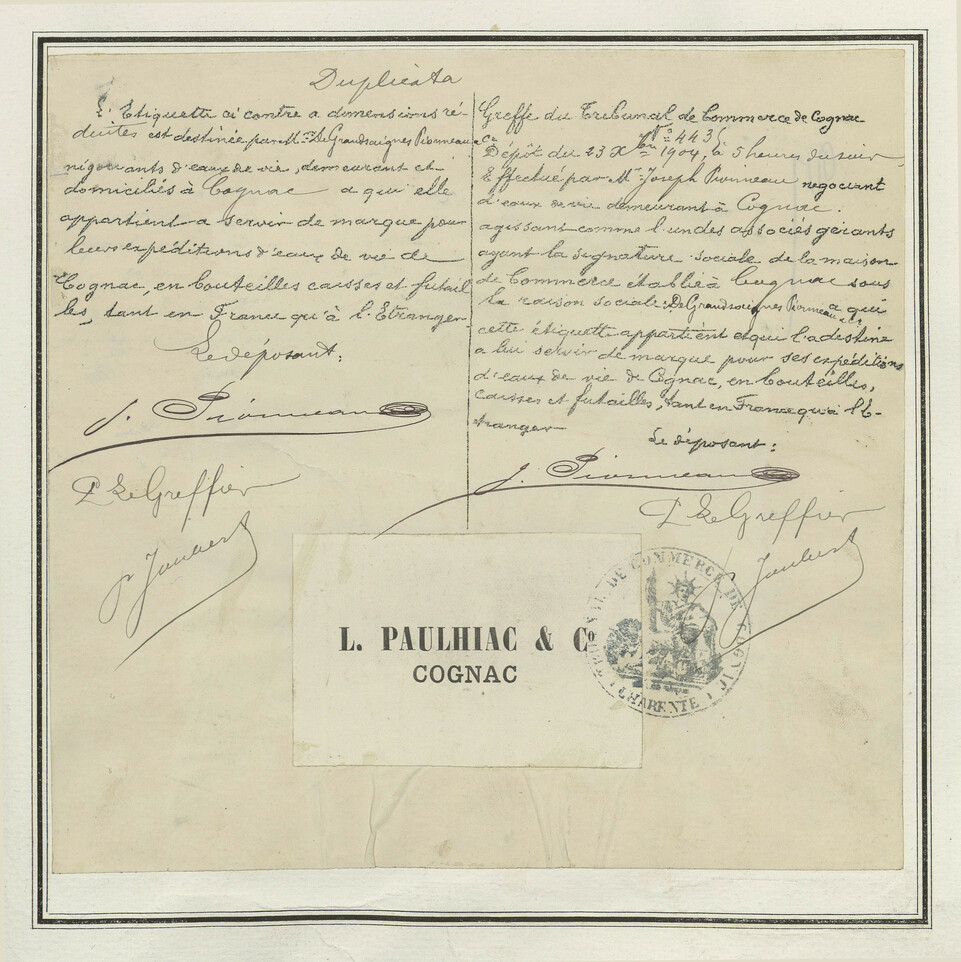 Duplicata
L'Etiquette ci contre a dimensions ré-
duites est destinée par MM. De Grandsaignes Pionneau & Cie
négociants d'eaux de vie, demeurant et
domiciliés à Cognac a qui elle
appartient a servir de marque pour
leurs expéditions d'eaux de vie de
Cognac, en bouteilles caisses et futail
les, tant en France qu'à l'Etranger
Le déposant:
J. Pionneau
P. Le Greffier
Joubert
Greffe du Tribunal de Commerce de Cognac
No 4435
Dépôt du 23 Xbre 1904, à 5 heures du soir
Effectué par Mr Joseph Pionneau negociant
d'eaux de vie demeurant à Cognac.
agissant comme l'un des associés gérants
ayant la signature sociale de la maison
de Commerce établie à Cognac sous
la raison sociale: De Grandsaignes Pionneau & Cie a qui
cette étiquette appartient et qui l'a destine
a lui servir de marque pour ses expéditions
d'eaux de vie de Cognac, en bouteilles,
caisses et futailles, tant en France qu'à l'E-
tranger
Le déposant:
J. Pionneau
P. Le Greffier
Joubert
L. PAULHIAC & Co
COGNAC
TRIBUNAL DE COMMERCE DE COGNAC
CHARENTE